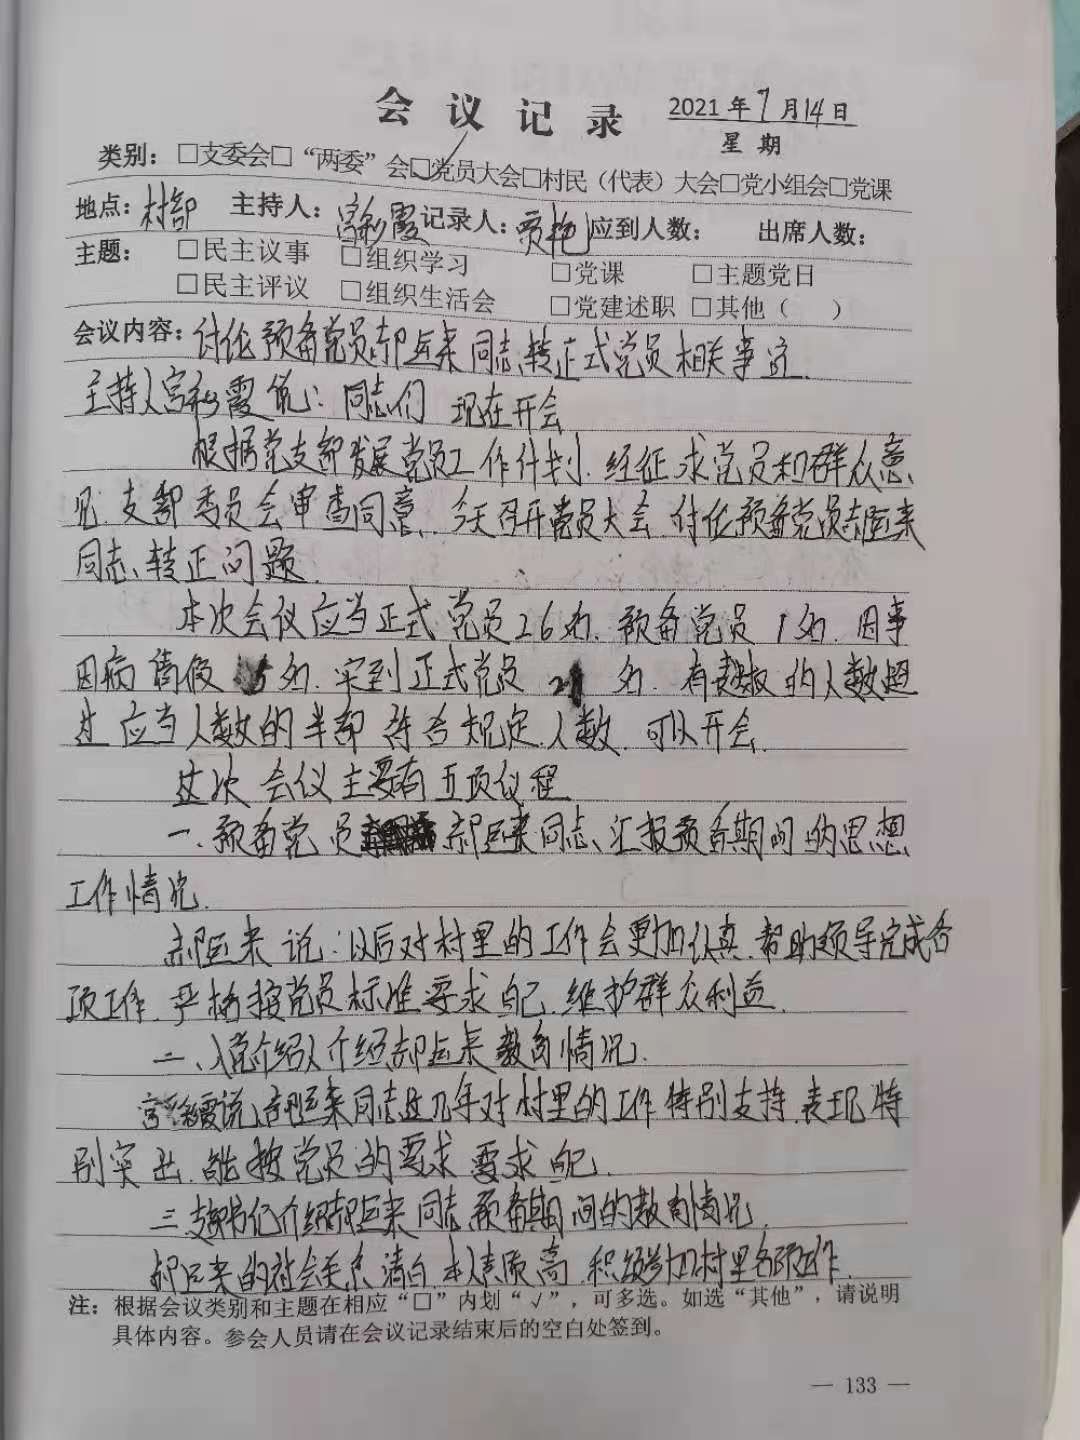 会议记录 2021年7月14日
星期
类别：□支委会□“两委”会☑党员大会□村民（代表）大会□党小组会□党课
地点：村部 主持人：宫彩霞 记录人：贾艳 应到人数： 出席人数：
主题： □民主议事 □组织学习 □党课 □主题党日
□民主评议 □组织生活会 □党建述职 □其他（ ）
会议内容：讨论预备党员郝运来同志转正式党员相关事宜.
主持人宫彩霞说：同志们 现在开会
根据党支部发展党员工作计划.经征求党员和群众意
见.支部委员会审查同意.今天召开党员大会 讨论预备党员郝运来
同志转正问题.
本次会议应当正式党员26名.预备党员1名.因事
因病请假5名.实到正式党员21名.有表决权的人数超
过应当人数的半部 符合规定人数.可以开会.
这次会议主要有五项仪程
一.预备党员郝运来同志汇报预备期间的思想
工作情况.
郝运来说：以后对村里的工作会更加认真.帮助领导完成各
项工作.严格按党员标准要求自己.维护群众利益.
二、入党介绍人介绍郝运来教育情况.
宫彩霞说、郝运来同志这几年对村里的工作特别支持.表现特
别突出.能按党员的要求要求自己.
三.支部书记介绍郝运来同志预备期间的教育情况.
郝运来的社会关系清白.本人素质高.积极参加村里各项工作.
注：根据会议类别和主题在相应“□”内划“√”，可多选。如选“其他”，请说明
具体内容。参会人员请在会议记录结束后的空白处签到。
— 133 —